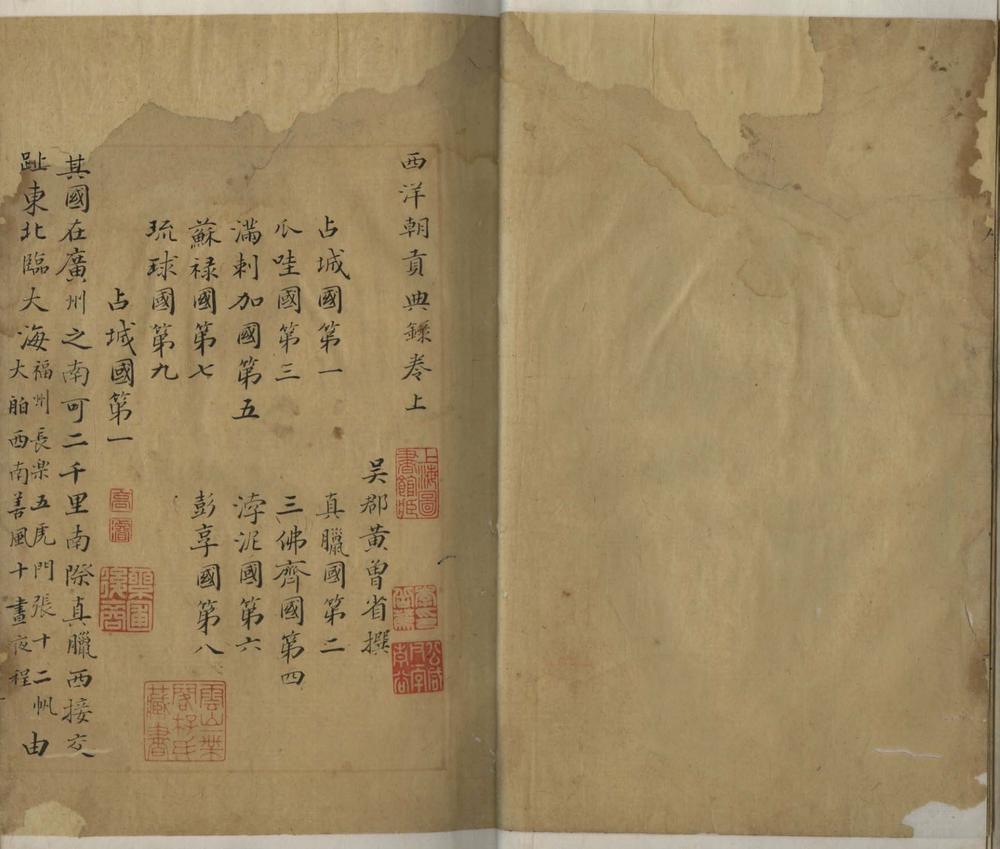 西洋朝貢典錄卷上
吴郡黄曾省撰
占城國第一 真臘國第二
爪哇國第三 三佛齊國第四
滿剌加國第五 浡泥國第六
蘇禄國第七 彭享國第八
琉球國第九
占城國第一
其國在廣州之南可二千里南際真臘西接交
趾東北臨大海福州長楽五虎門張十二帆
大舶西南善風十晝夜程由
上海圖書館藏